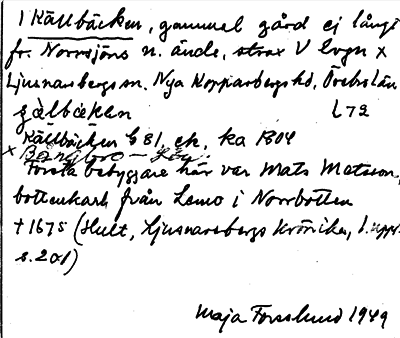 1 Källbäcken, gammal gård ej långt
fr. Norrsjöns n. ände, strax V lvgn x
Ljusnarsbergs sn. Nya Kopparbergs hd, Örebro län
gälbäkken L72
Källbäcken b 81, ek. ka 1304
x Bångbro –
Första bebyggare här var Mats Matsson,
bottenkarl från Lemo i Norrbotten
† 1675 (Hult, Ljusnarsbergs krönika, 1. uppl.
s. 201)
Maja Forsslund 1949